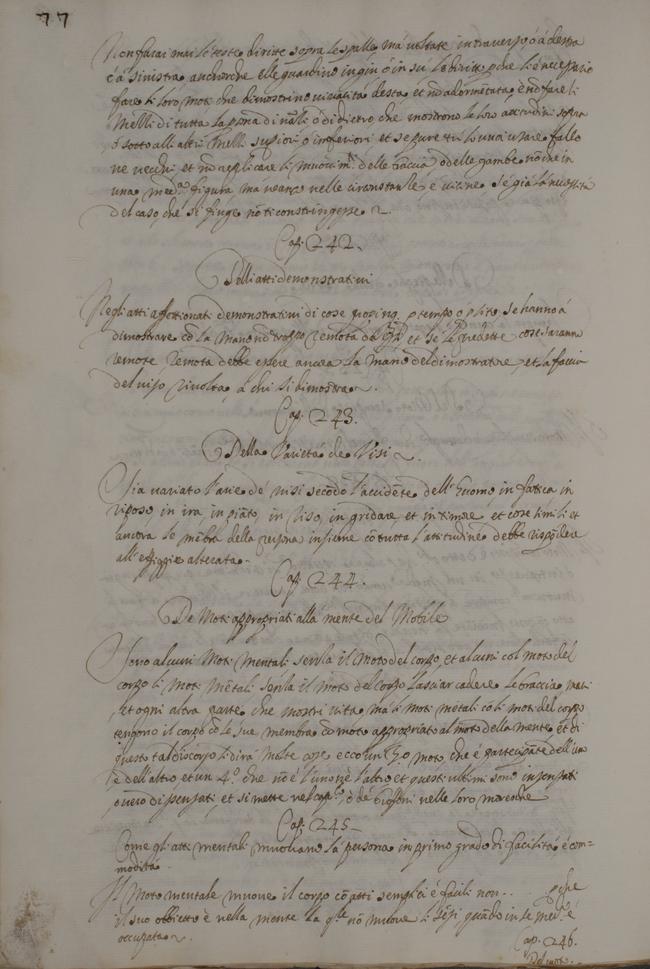 77
Non farai mai le teste diritte sopra le spalle, mà voltate in traverso ò à destra
ò à sinistra anchorche elle guardino in giu ò in su ò diritto, pche li è necessario
fare li loro moti che dimostrino vivacità desta, et nō adormētata, è nō fare li
melli di tutta la psona di nāti ò di dietro, che mostrono le loro
ò sotto all' altri melli supiori ò inferiori et se pure tu lo vuoi usare fallo
ne vecchi, et nō replicare li muovim.ti delle braccia, ò delle gambe, nō che in
una med.a figura, ma neanco nelle circunstanti, è vicine, se già la necessità
del caso, che si finge nō ti constringesse.
Cap. 242.
Delli atti demonstrativi
Negli atti affettionati demonstrativi di cose propinq. p tempo, o p sito, se hanno à
dimostrare cō la mano nō troppo remota da et se le predette cose saranno
remote, remota debbe essere ancora la mano del dimostratore, et la faccia
del viso rivolta, à chi si dimostra.
Cap. 243.
Della Varietà de Visi.
Sia variato l'arie de' visi secōdo l'accidēte dell' huomo in fatica in
riposo in ira in piāto, in riso, in gridare, et in timore, et cose simili et
ancora le mēbra della psona insieme cō tutta l'attitudine debbe rispōdere
all' effiggie alterata.
Cap. 244.
De Moti appropriati alla mente del Mobile
Sono alcuni Moti mentali senza il moto del corpo, et alcuni col moto del
corpo li moti mētali senza il moto del corpo lasciar cadere le braccia mani
et ogni altra parte, che mostri vita, ma li moti mētali cō li moti del corpo
tengono il corpo cō le sue membra cō moto appropriato al moto della mente, et di
questo tal discorso si dirà molte cose, ecco un 3.o moto, che è partecipāte dell' uno
è dell' altro, et un 4.o che nō è l'uno nè l'altro, et questi ultimi sono insensati
overo dispensati, et si mette nel cap.lo ò de' buffoni nelle loro moresche
Cap. 245.
Come gli atti mentali muovano la persona in primo grado di facilità è com-
modità.
Il Moto mentale muove il corpo cō atti semplici è facili non.. pche
il suo obbietto è nella mente la q.le nō muove li sēsi quādo in se med.a è
occupata.
Cap. 246.
Del moto.